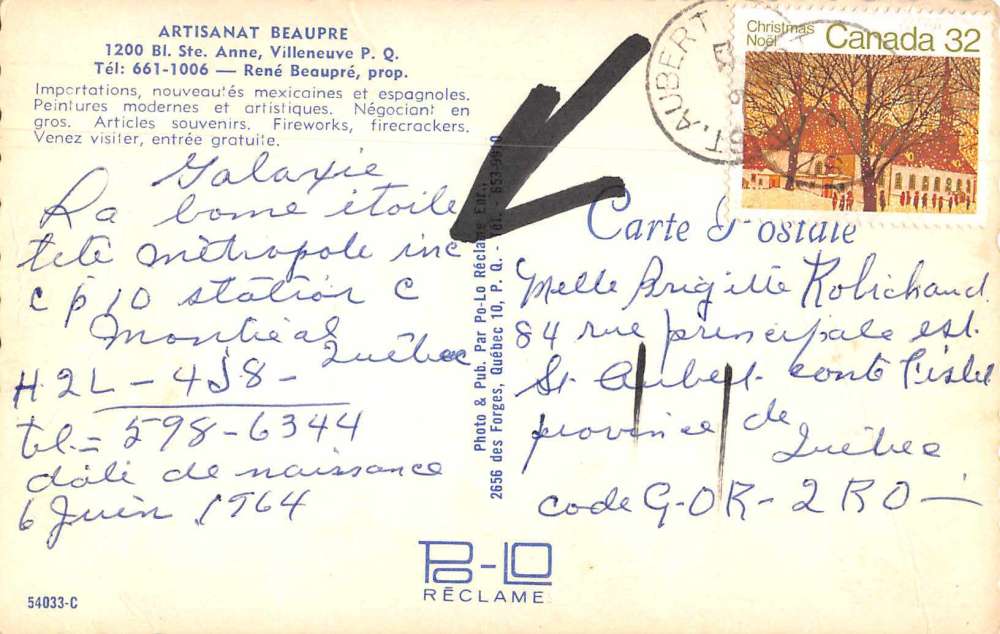 ARTISANAT BEAUPRE
1200 Bl. Ste. Anne, Villeneuve P. Q.
Tél: 661-1006 — René Beaupré, prop.
Importations, nouveautés mexicaines et espagnoles.
Peintures modernes et artistiques. Négociant en
gros. Articles souvenirs. Fireworks, firecrackers.
Venez visiter, entrée gratuite.
Galaxie
La bonne étoile
télé métropole inc
c p 10 station C
Montréal
Québec
H2L-4J8-
tel.= 598-6344
date de naissance
6 Juin 1964
Photo & Pub. Par Po-Lo Réclame Enr.,
2656 des Forges, Québec 10, P. Q. - Tél. - 653-9910
ST. AUBERT
Christmas
Noël
Canada 32
Carte Postale
Melle Brigitte Robichaud
84 rue principale est.
St Aubert. conté l'islet
province de
Québec
code G-OR-2RO—
PO-LO
RÉCLAME
54033-C